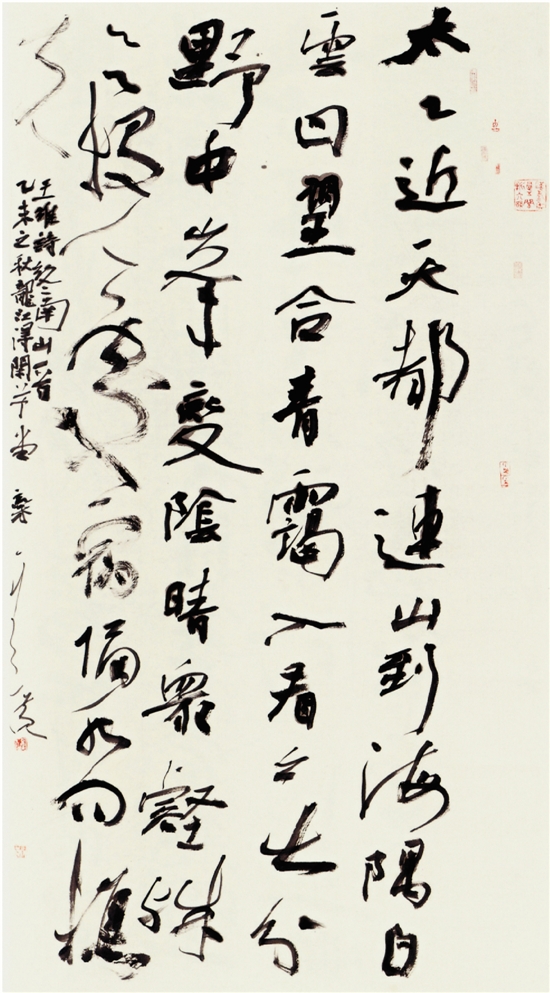 太乙近天都連山到海隅白
雲回望合青靄入看無分
野中峯變陰晴眾壑殊
欲投人處宿隔水問樵
夫
王維詩終南山一首
乙未之秋龍江得閑草堂